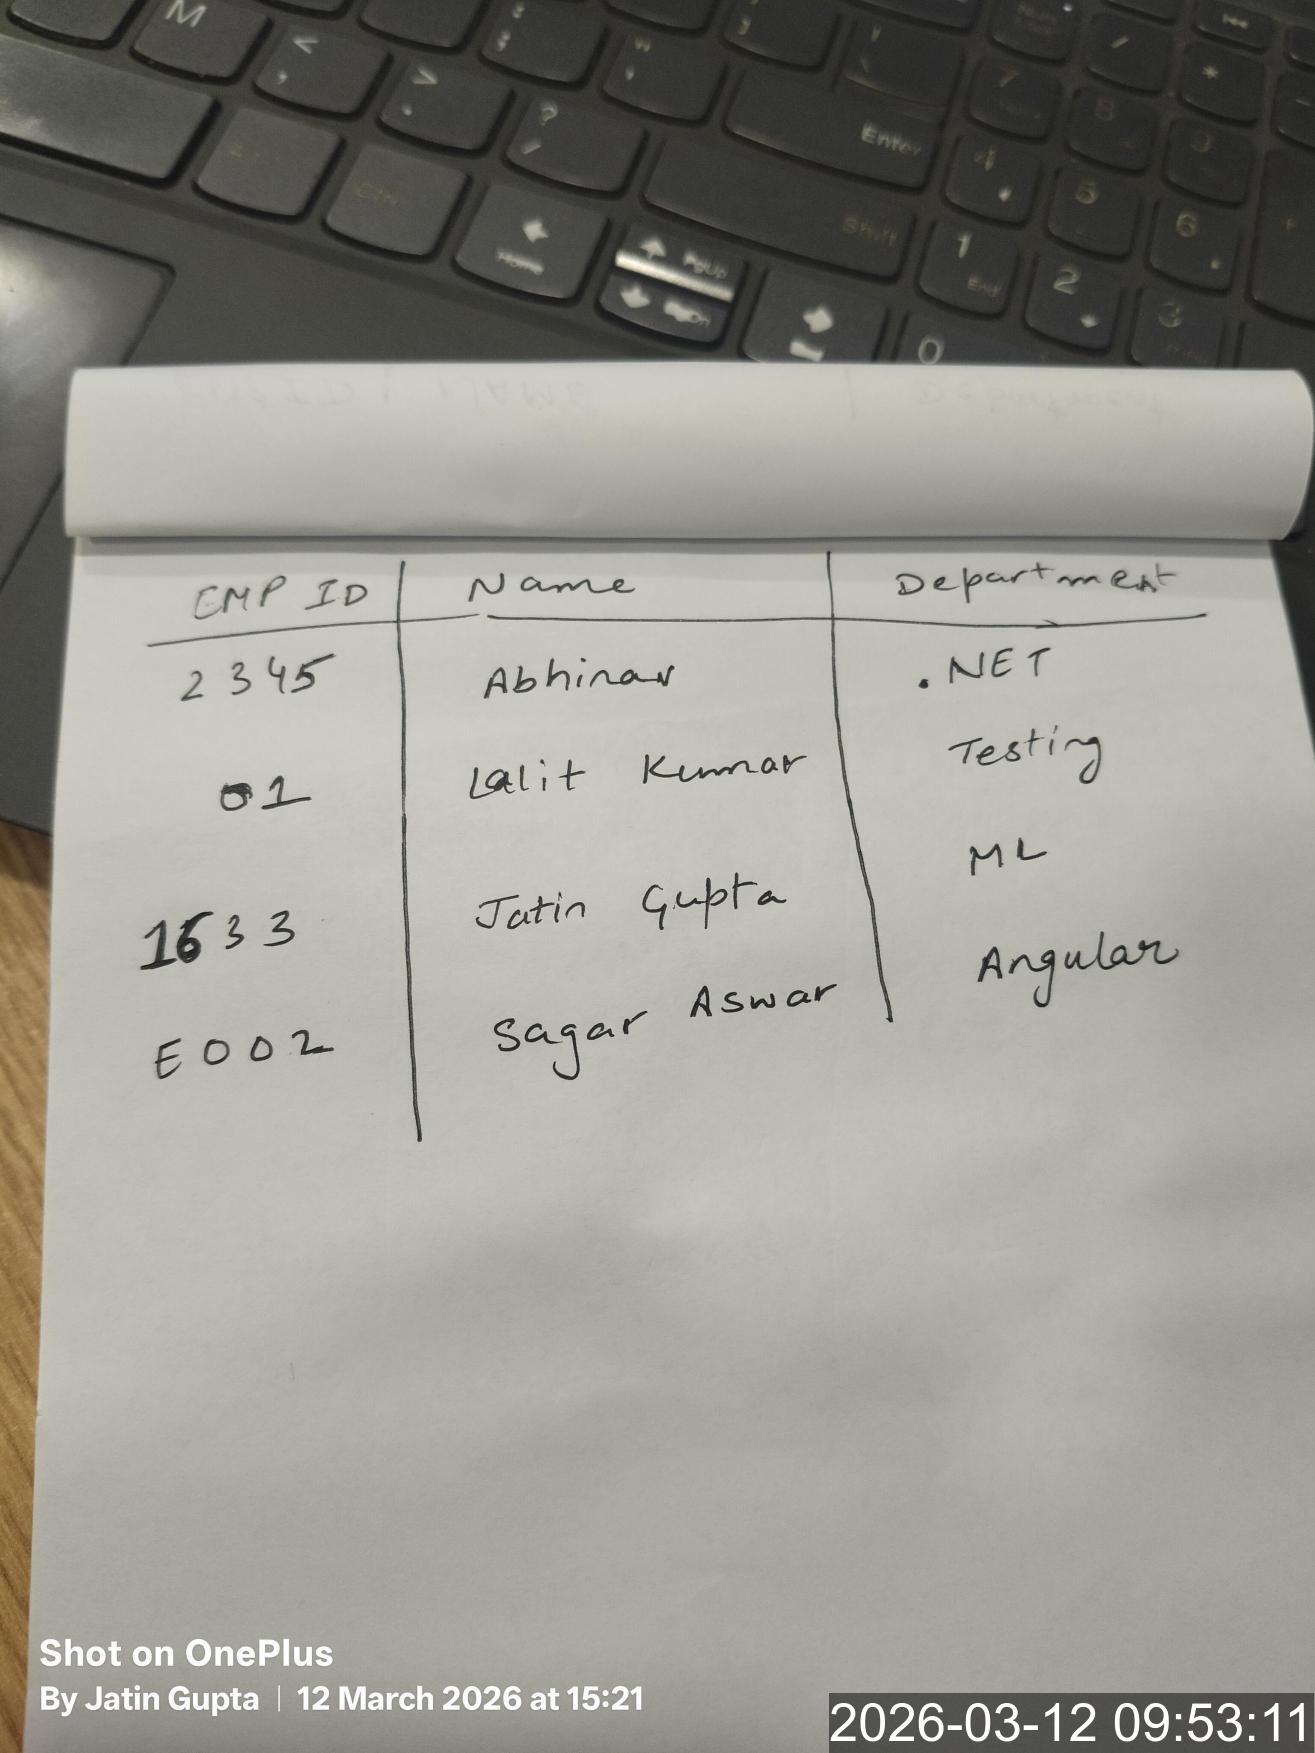 M
<
,
>
.
?
/
Enter
Shift
Home
PgUp
7
8
9
*
4
5
6
1
End
2
3
0
EMP ID Name Department
2345 Abhinav .NET
01 Lalit Kumar Testing
1633 Jatin Gupta ML
E002 Sagar Aswar Angular
Shot on OnePlus
By Jatin Gupta | 12 March 2026 at 15:21
2026-03-12 09:53:11